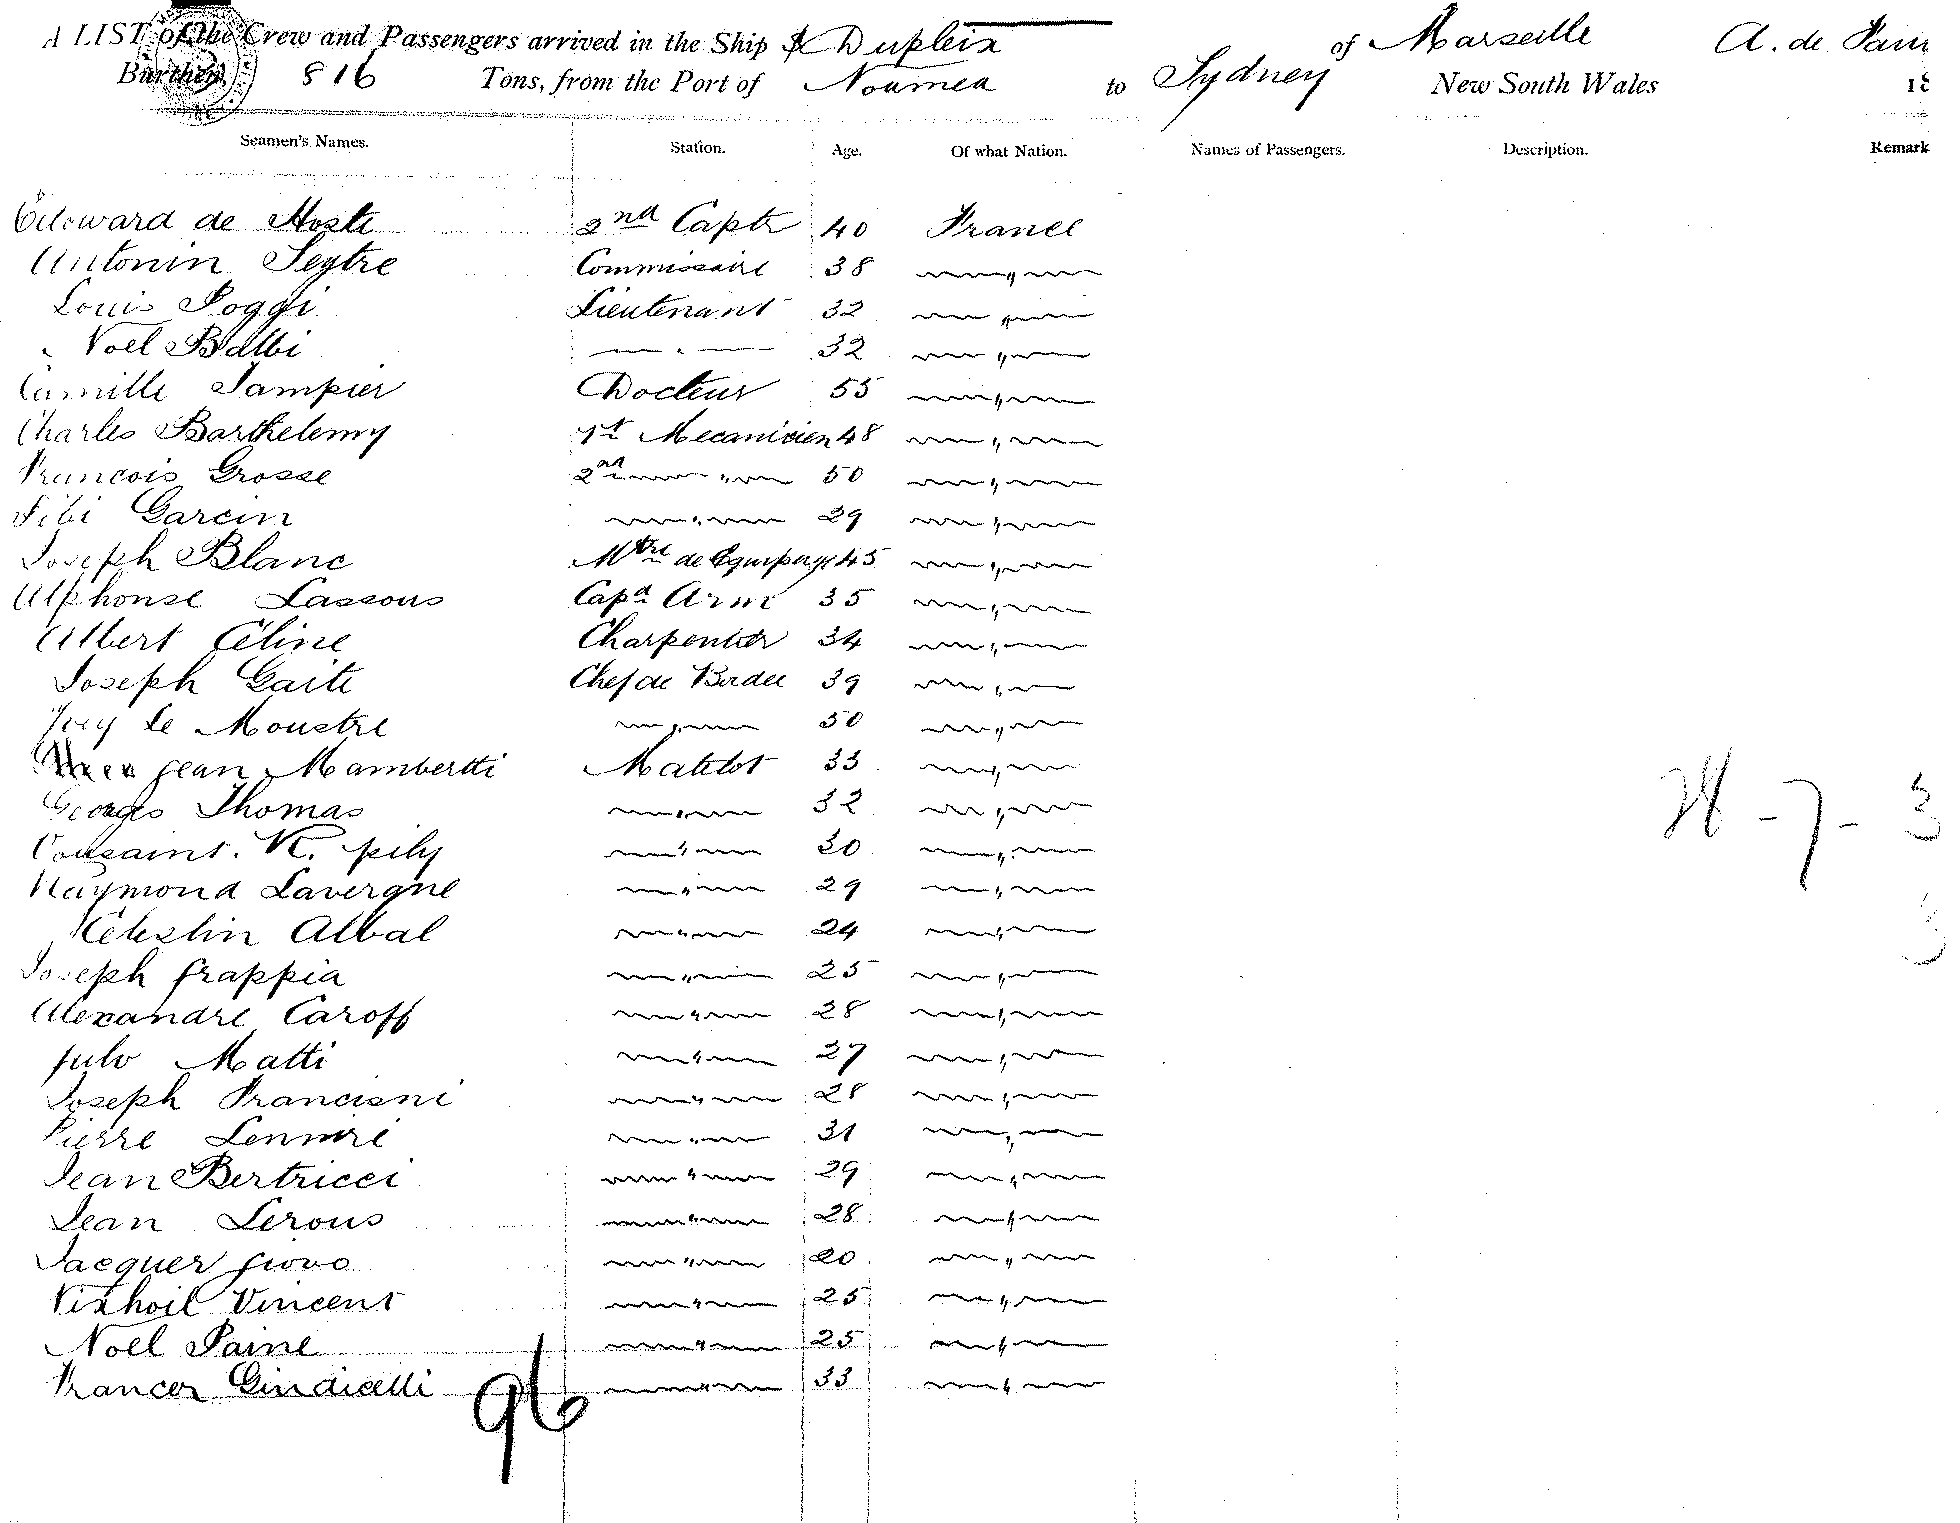 A LIST of the Crew and Passengers arrived in the Ship Dupleix of Marseille A. de
Burthen 816 Tons, from the Port of Noumea to Sydney New South Wales 18
Seamen's Names. Station. Age. Of what Nation. Names of Passengers. Description. Remark
Edouard de Hoste 2nd Capt 40 France
Antonin Seytre Commissaire 38 " 
Louis Poggi Lieutenant 32 "
Noel Balbi " 32 "
Camille Jampier Docteur 55 "
Charles Barthelemy 1st Mecanicien 48 "
Francois Grosse 2nd " 50 "
Garcin " 29 "
Joseph Blanc Mtre de Equipage 45 "
Alphonse Lassous Capn Arm 35 "
Albert Celine Charpentier 34 "
Joseph Gaite Chef de Bordee 39 "
le Moustre " 50 "
Jean Mambertti Matelot 33 "
Georges Thomas " 32 "
K. pily " 30 "
Raymond Lavergne " 29 "
Celestin Albal " 24 "
Joseph frappia " 25 "
Alexandre Caroff " 28 "
Matti " 27 "
Joseph Francisni " 28 "
Pierre " 31 "
Jean Bertricci " 29 "
Jean Lerous " 28 "
Jacquer " 20 "
Vincent " 25 "
Noel Paine " 25 "
Gindicelli " 33 "
28 - 7 - 3
3
96